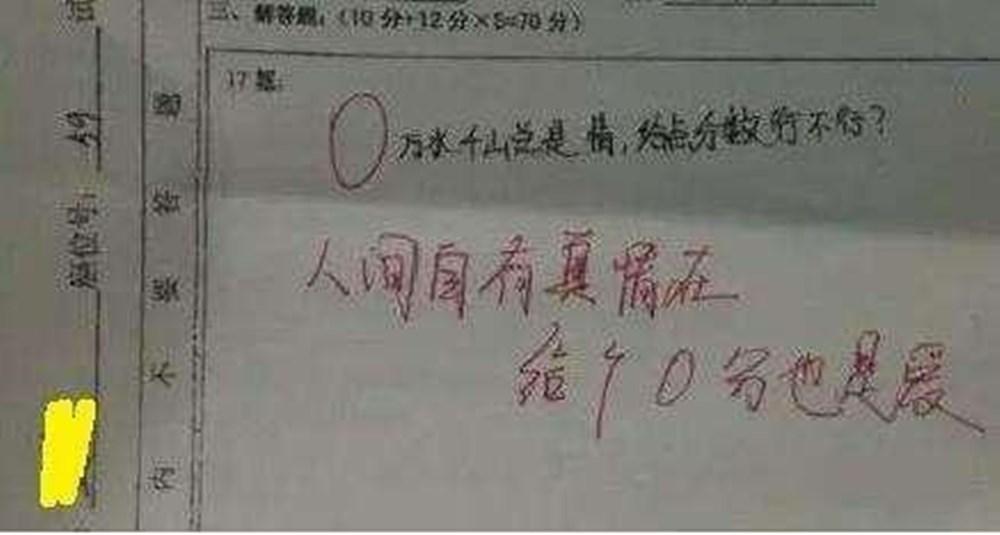 三、解答题:(10分+12分×5=70分)
17题:
0 万水千山总是情,给点分数行不行?
人间自有真情在
给个0分也是爱
座位号:
内 不 要 答 题